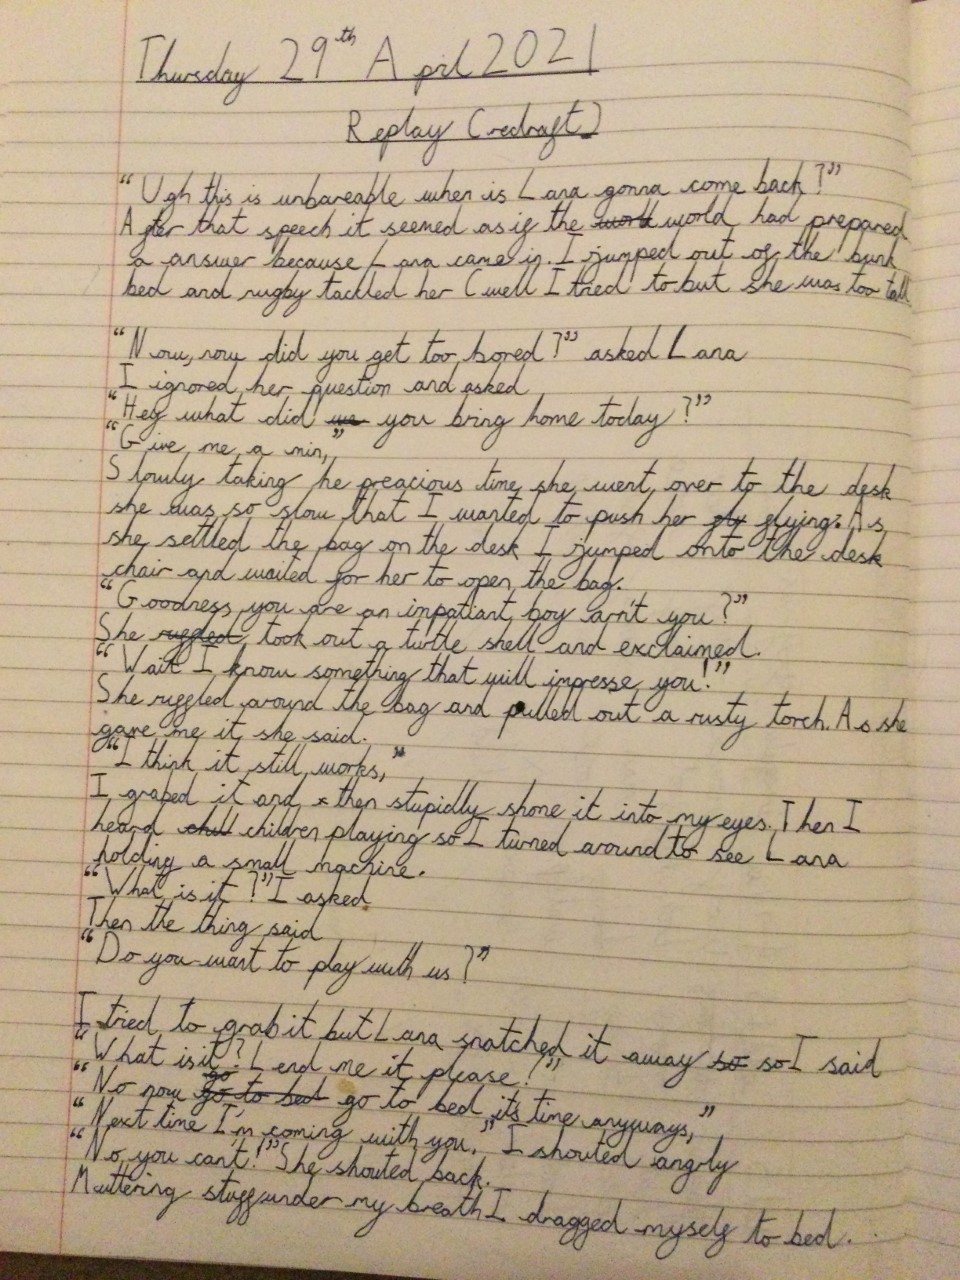 Thursday 29th April 2021
Replay (redraft)
"Ugh this is unbareable when is Lana gonna come back?"
After that speech it seemed as if the world world had prepared
a answer because Lana came in. I jumped out of the bunk
bed and rugby tackled her (well I tried to but she was too tall
"Now, now did you get too bored?" asked Lana
I ignored her question and asked
"Hey what did we you bring home today?"
"Give me a min,"
Slowly taking he preacious time she went over to the desk
she was so slow that I wanted to push her fly flying. As
she settled the bag on the desk I jumped onto the desk
chair and waited for her to open the bag.
"Goodness you are an impatiant boy arn't you?"
She ruffled took out a turtle shell and exclaimed.
"Wait I know something that will impresse you!"
She ruffled around the bag and pulled out a rusty torch. As she
gave me it she said.
"I think it still works,"
I grabed it and then stupidly shone it into my eyes. Then I
heard chill children playing so I turned around to see Lana
holding a small machine.
"What is it?" I asked
Then the thing said
"Do you want to play with us?"
I tried to grab it but Lana snatched it away so so I said
"What is it? Lend me it please!"
"No now go go to bed go to bed it's time anyways,"
"Next time I'm coming with you," I shouted angrly
"No you can't!" She shouted back.
Muttering stuff under my breath I dragged myself to bed.